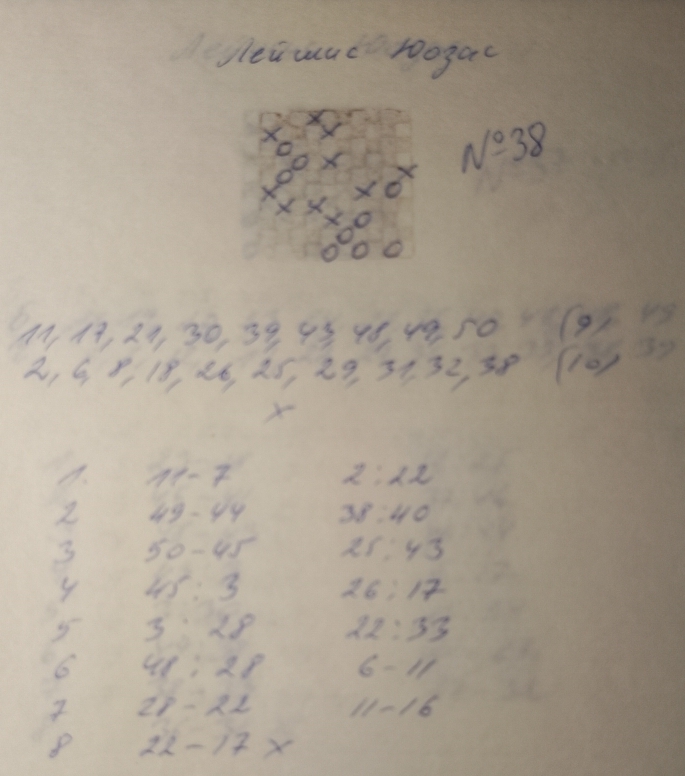 Лейшис Юозас
№38
11, 17, 21, 30, 39, 43, 48, 49, 50 (9)
2, 6, 8, 18, 26, 25, 29, 31, 32, 38 (10)
x
1. 11-7 2:22
2 49-44 38:40
3 50-45 25:43
4 45:3 26:17
5 3:28 22:33
6 48:28 6-11
7 28-22 11-16
8 22-17 x